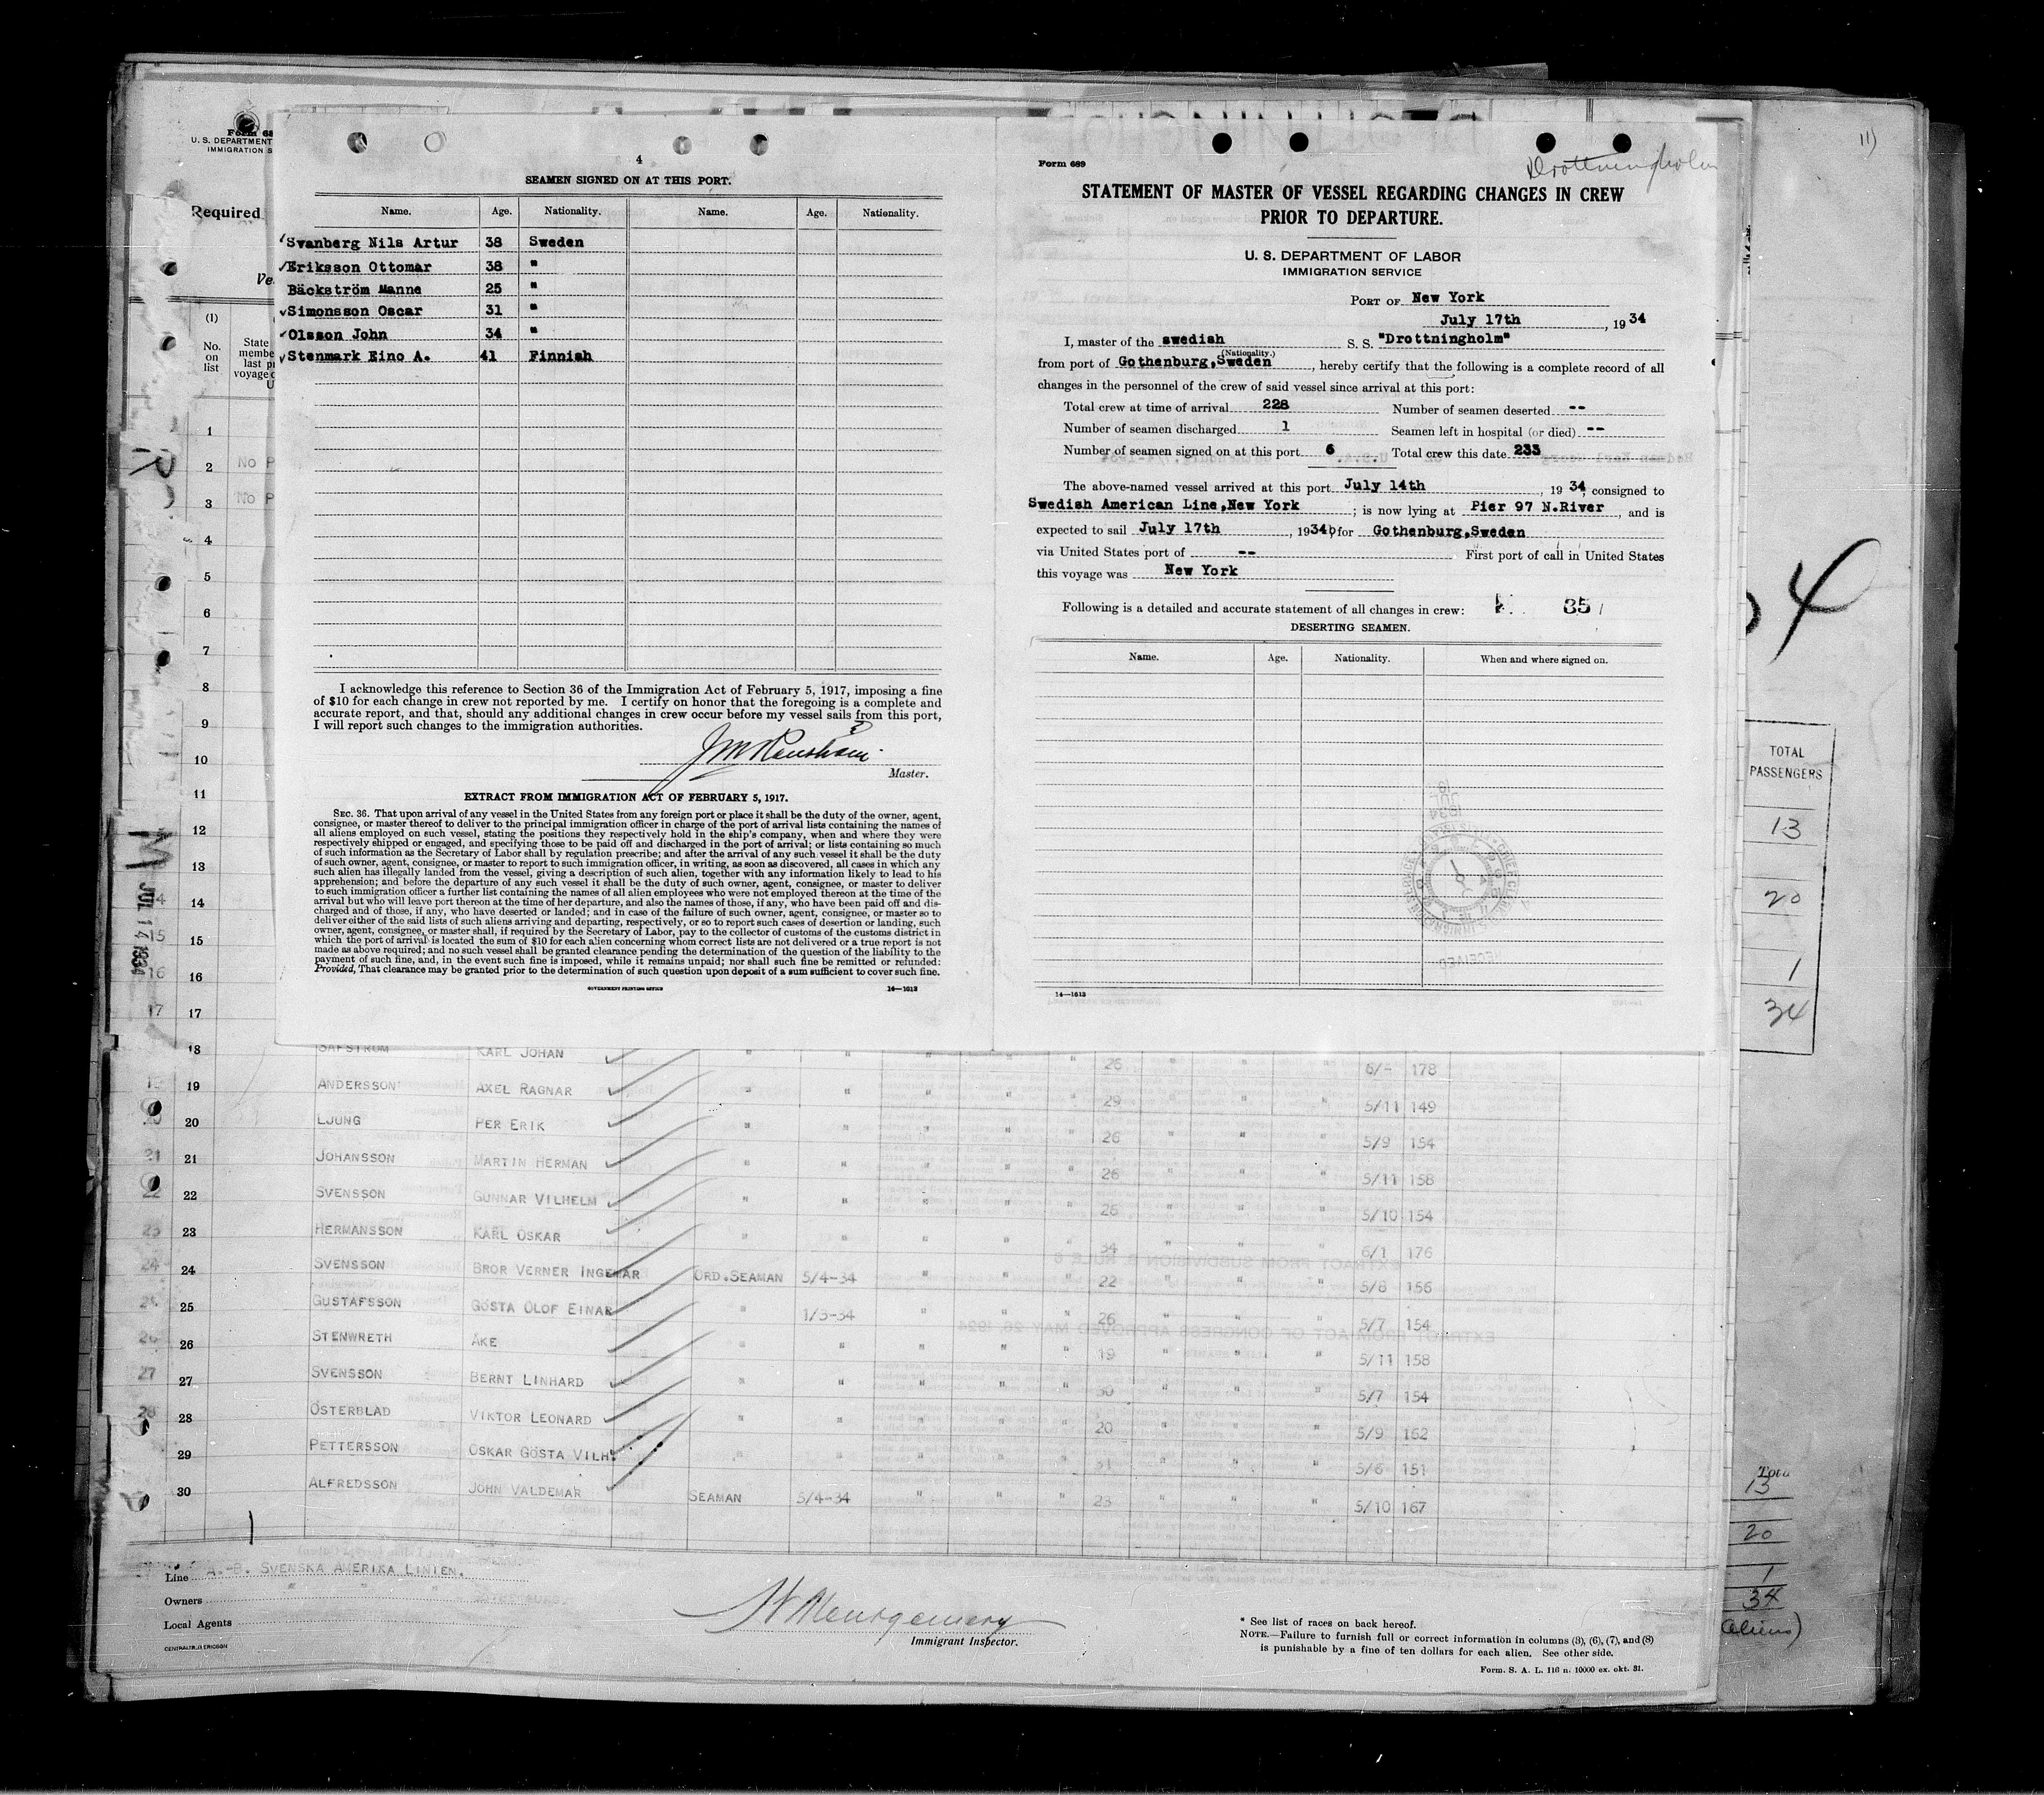 11)
Form 68
U. S. DEPARTMENT
IMMIGRATION S
Required
(1)
No.
on
list
State
1
2 No P
3 No P
4
5
6
7
8
9
10
11
12
13
14
15
16
17
JUL 14 1934
4
SEAMEN SIGNED ON AT THIS PORT.
Name. Age. Nationality. Name. Age. Nationality.
Svanberg Nils Artur 38 Sweden
Eriksson Ottomar 38 "
Bäckström Manne 25 "
Simonsson Oscar 31 "
Olsson John 34 "
Stenmark Eino A. 41 Finnish
I acknowledge this reference to Section 36 of the Immigration Act of February 5, 1917, imposing a fine
of $10 for each change in crew not reported by me. I certify on honor that the foregoing is a complete and
accurate report, and that, should any additional changes in crew occur before my vessel sails from this port,
I will report such changes to the immigration authorities.
Master.
EXTRACT FROM IMMIGRATION ACT OF FEBRUARY 5, 1917.
SEC. 36. That upon arrival of any vessel in the United States from any foreign port or place it shall be the duty of the owner, agent,
consignee, or master thereof to deliver to the principal immigration officer in charge of the port of arrival lists containing the names of
all aliens employed on such vessel, stating the positions they respectively hold in the ship's company, when and where they were
respectively shipped or engaged, and specifying those to be paid off and discharged in the port of arrival; or lists containing so much
of such information as the Secretary of Labor shall by regulation prescribe; and after the arrival of any such vessel it shall be the duty
of such owner, agent, consignee, or master to report to such immigration officer, in writing, as soon as discovered, all cases in which any
such alien has illegally landed from the vessel, giving a description of such alien, together with any information likely to lead to his
apprehension; and before the departure of any such vessel it shall be the duty of such owner, agent, consignee, or master to deliver
to such immigration officer a further list containing the names of all alien employees who were not employed thereon at the time of the
arrival but who will leave port thereon at the time of her departure, and also the names of those, if any, who have been paid off and dis-
charged and of those, if any, who have deserted or landed; and in case of the failure of such owner, agent, consignee, or master so to
deliver either of the said lists of such aliens arriving and departing, respectively, or so to report such cases of desertion or landing, such
owner, agent, consignee, or master shall, if required by the Secretary of Labor, pay to the collector of customs of the customs district in
which the port of arrival is located the sum of $10 for each alien concerning whom correct lists are not delivered or a true report is not
made as above required; and no such vessel shall be granted clearance pending the determination of the question of the liability to the
payment of such fine, and, in the event such fine is imposed, while it remains unpaid; nor shall such fine be remitted or refunded:
Provided, That clearance may be granted prior to the determination of such question upon deposit of a sum sufficient to cover such fine.
GOVERNMENT PRINTING OFFICE 14—1613
Form 689
Drottningholm
STATEMENT OF MASTER OF VESSEL REGARDING CHANGES IN CREW
PRIOR TO DEPARTURE.
U. S. DEPARTMENT OF LABOR
IMMIGRATION SERVICE
PORT OF New York
July 17th, 1934
I, master of the swedish S. S. "Drottningholm"
(Nationality.)
from port of Gothenburg,Sweden, hereby certify that the following is a complete record of all
changes in the personnel of the crew of said vessel since arrival at this port:
Total crew at time of arrival 228 Number of seamen deserted --
Number of seamen discharged 1 Seamen left in hospital (or died) --
Number of seamen signed on at this port 6 Total crew this date 233
The above-named vessel arrived at this port July 14th, 1934, consigned to
Swedish American Line,New York; is now lying at Pier 97 N.River, and is
expected to sail July 17th, 1934, for Gothenburg,Sweden
via United States port of -- First port of call in United States
this voyage was New York
Following is a detailed and accurate statement of all changes in crew: 35
DESERTING SEAMEN.
Name. Age. Nationality. When and where signed on.
14—1613
4
TOTAL
PASSENGERS
13
20
1
34
18 SÄFSTRÖM KARL JOHAN " " " " " 26 " " " 6/- 178
19 ANDERSSON AXEL RAGNAR " " " " " 29 " " " 5/11 149
20 LJUNG PER ERIK " " " " " 26 " " " 5/9 154
21 JOHANSSON MARTIN HERMAN " " " " " 26 " " " 5/11 158
22 SVENSSON GUNNAR VILHELM " " " " " 26 " " " 5/10 154
23 HERMANSSON KARL OSKAR " " " " " 34 " " " 6/1 176
24 SVENSSON BROR VERNER INGEMAR ORD.SEAMAN 5/4-34 " " " 22 " " " 5/8 156
25 GUSTAFSSON GÖSTA OLOF EINAR " 1/3-34 " " " 26 " " " 5/7 154
26 STENWRETH ÅKE " " " " " 19 " " " 5/11 158
27 SVENSSON BERNT LINHARD " " " " " 30 " " " 5/7 154
28 ÖSTERBLAD VIKTOR LEONARD " " " " " 20 " " " 5/9 162
29 PETTERSSON OSKAR GÖSTA VILH. " " " " " 31 " " " 5/6 151
30 ALFREDSSON JOHN VALDEMAR SEAMAN 5/4-34 " " " 23 " " " 5/10 167
Line A.-B. SVENSKA AMERIKA LINIEN.
Owners " " "
Local Agents
Montgomery
Immigrant Inspector.
* See list of races on back hereof.
NOTE.—Failure to furnish full or correct information in columns (3), (6), (7), and (8)
is punishable by a fine of ten dollars for each alien. See other side.
Form. S. A. L. 116 n. 10000 ex. okt. 31.
13
20
1
34
(Aliens)